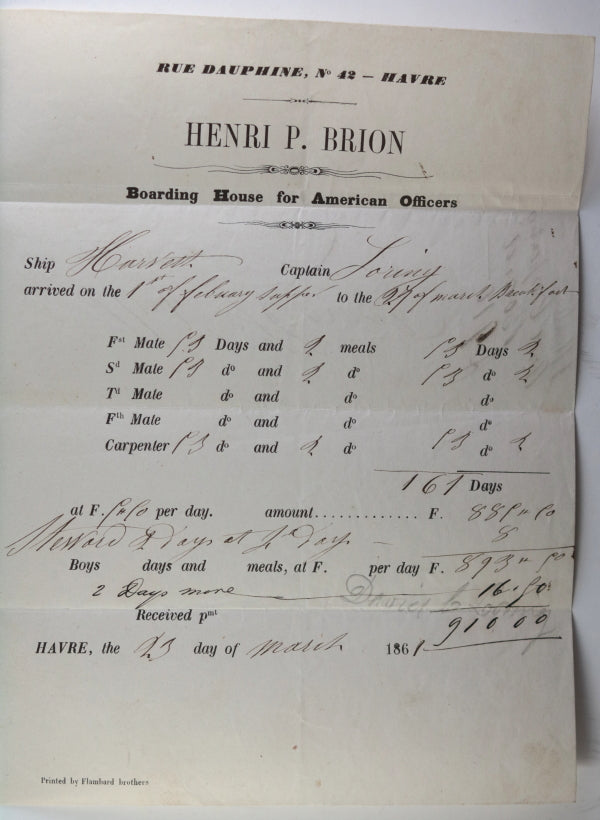 RUE DAUPHINE, No 42 — HAVRE
HENRI P. BRION
Boarding House for American Officers
Ship Harvest Captain Loring
arrived on the 1st of february supper to the 27 of march Breakfast
Fst Mate 53 Days and 2 meals 53 Days 2
Sd Mate 53 do and 2 do 53 do 2
Td Mate do and do do
Fth Mate do and do do
Carpenter 53 do and 2 do 53 do 2
161 Days
at F. 5"50 per day. amount............. F. 885"50
Steward 2 Days at Days — 8
Boys days and meals, at F. per day F. 893"50
2 Days more — 16.50
Daniel Loring
Received pmt 910 00
HAVRE, the day of march 1861
Printed by Flambard brothers